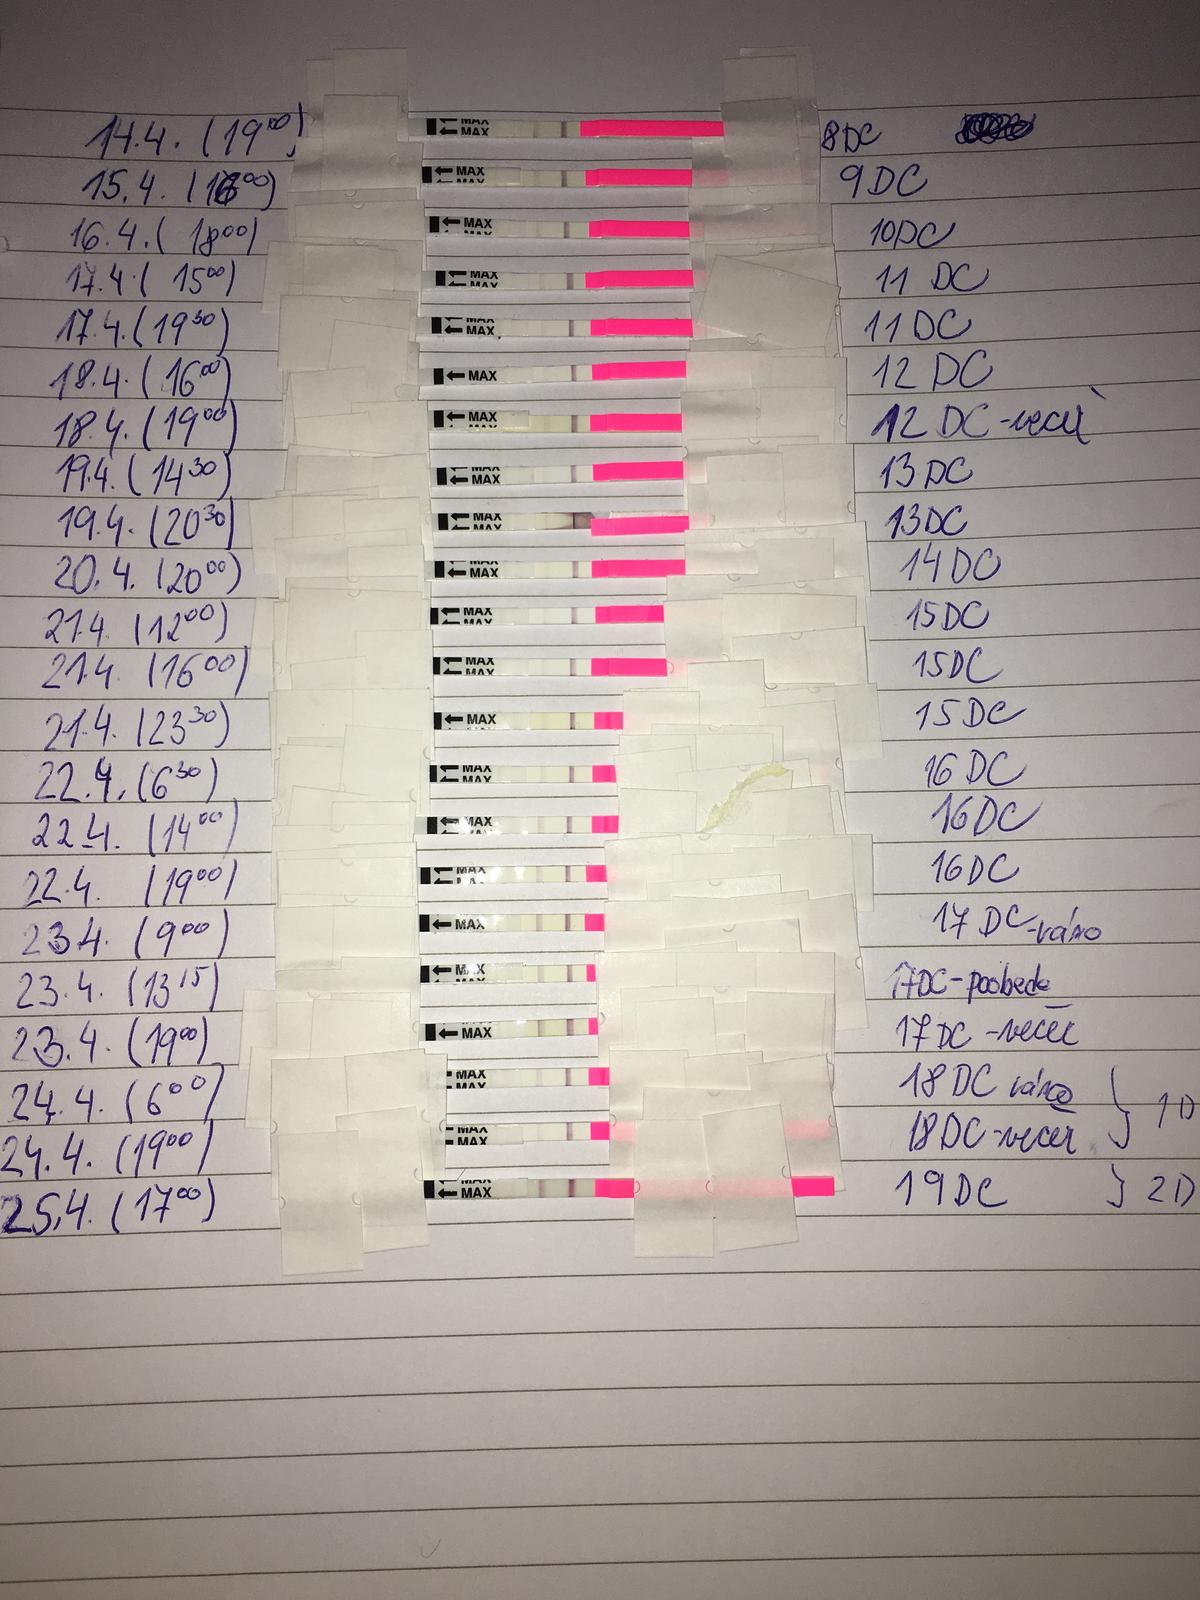 14.4. (19⁰⁰) MAX MAX 8DC
15.4. (16⁰⁰) MAX MAX 9DC
16.4. (18⁰⁰) MAX 10DC
17.4. (15⁰⁰) MAX MAX 11 DC
17.4. (19³⁰) MAX MAX 11 DC
18.4. (16⁰⁰) MAX 12 DC
18.4. (19⁰⁰) MAX 12 DC-večer
19.4. (14³⁰) MAX MAX 13 DC
19.4. (20³⁰) MAX MAX 13DC
20.4. (20⁰⁰) MAX MAX 14DC
21.4. (12⁰⁰) MAX MAX 15DC
21.4. (16⁰⁰) MAX MAX 15DC
21.4. (23³⁰) MAX 15 DC
22.4. (6³⁰) MAX MAX 16 DC
22.4. (14⁰⁰) MAX 16DC
22.4. (19⁰⁰) MAX 16DC
23.4. (9⁰⁰) MAX 17 DC-ráno
23.4. (13¹⁵) MAX MAX 17DC-poobede
23.4. (19⁰⁰) MAX 17 DC-večer
24.4. (6⁰⁰) MAX MAX 18 DC ráno
24.4. (19⁰⁰) MAX MAX 18 DC-večer } 1D
25.4. (17⁰⁰) MAX MAX 19 DC } 2D